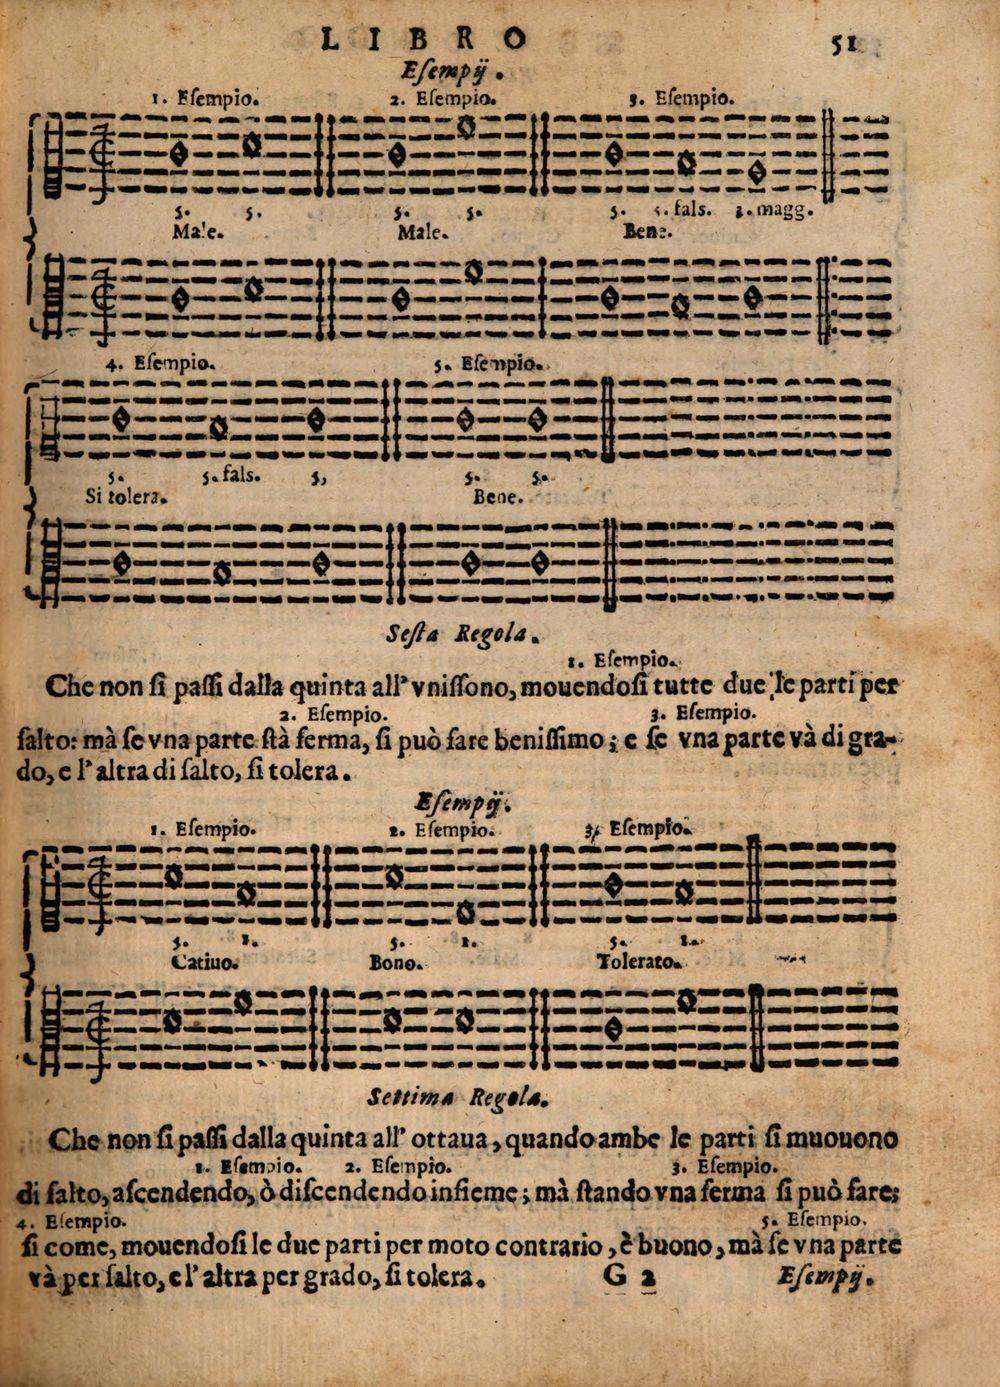 LIBRO 51
Eſempij.
1. Eſempio. 2. Eſempio. 3. Eſempio.
5. 5. 5. 5. 5. 5. fals. 3. magg.
Male. Male. Bene.
4. Eſempio. 5. Eſempio.
5. 5. fals. 5, 5. 5.
Si tolera. Bene.
Seſta Regola.
1. Eſempio.
Che non ſi paſſi dalla quinta all' vniſſono, mouendoſi tutte due le parti per
2. Eſempio. 3. Eſempio.
ſalto: mà ſe vna parte ſtà ferma, ſi può fare beniſſimo; e ſe vna parte và di gra-
do, e l' altra di ſalto, ſi tolera.
Eſempij.
1. Eſempio. 2. Eſempio. 3. Eſempio.
5. 1. 5. 1. 5. 1.
Catiuo. Bono. Tolerato.
Settima Regola.
Che non ſi paſſi dalla quinta all' ottaua, quando ambe le parti ſi muouono
1. Eſempio. 2. Eſempio. 3. Eſempio.
di ſalto, aſcendendo, ò diſcendendo inſieme; mà ſtando vna ferma ſi può fare;
4. Eſempio. 5. Eſempio.
ſi come, mouendoſi le due parti per moto contrario, è buono, mà ſe vna parte
và per ſalto, e l' altra per grado, ſi tolera. G 2 Eſempij.